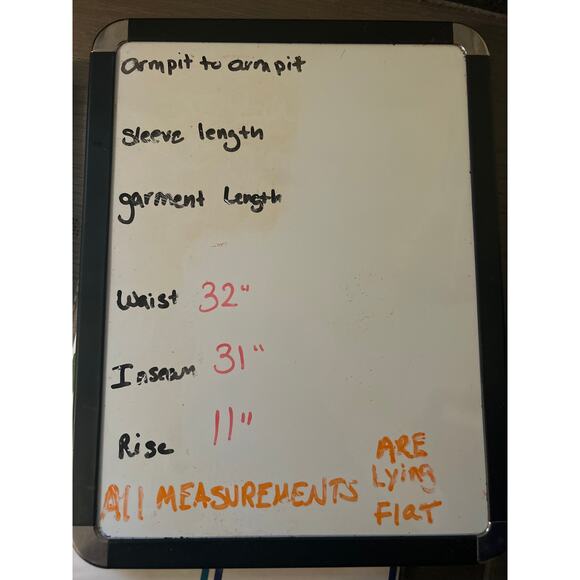 armpit to armpit
sleeve length
garment Length
Waist 32"
Inseam 31"
Rise 11"
All MEASUREMENTS ARE Lying Flat